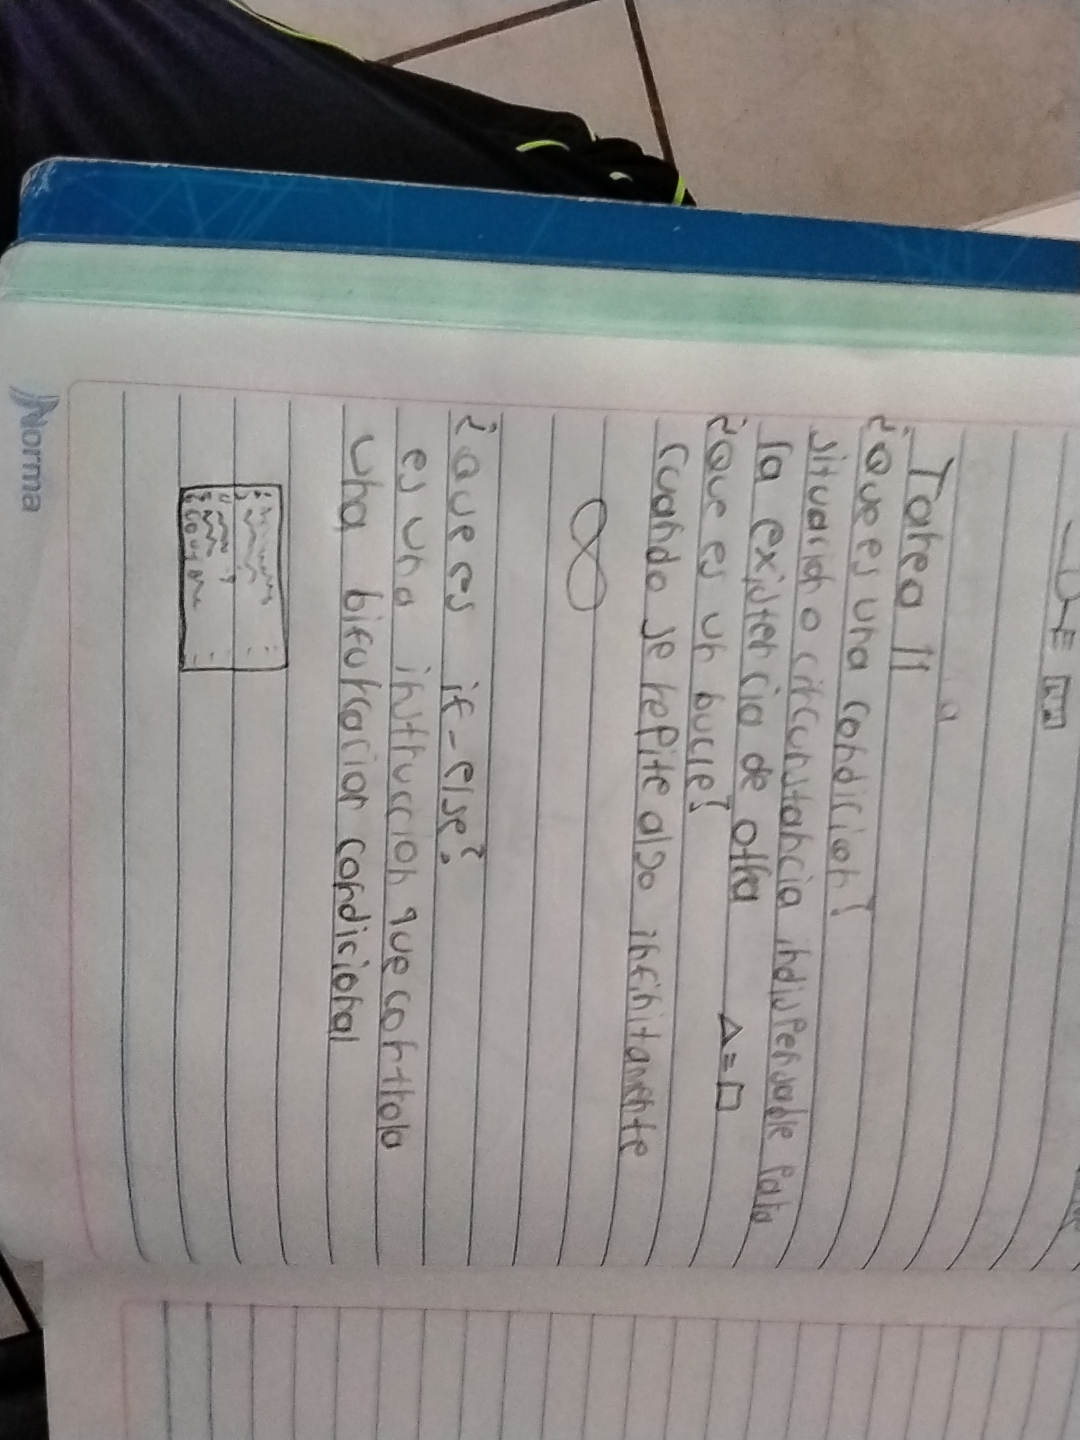 Tarea 11
¿Que es una condicion?
situacion o circunstancia indispensable para
la existencia de otra
¿Que es un bucle?
Cuando se repite algo infinitamente
¿Que es if-else?
es una instruccion que controla
una bifurcacion condicional
Norma